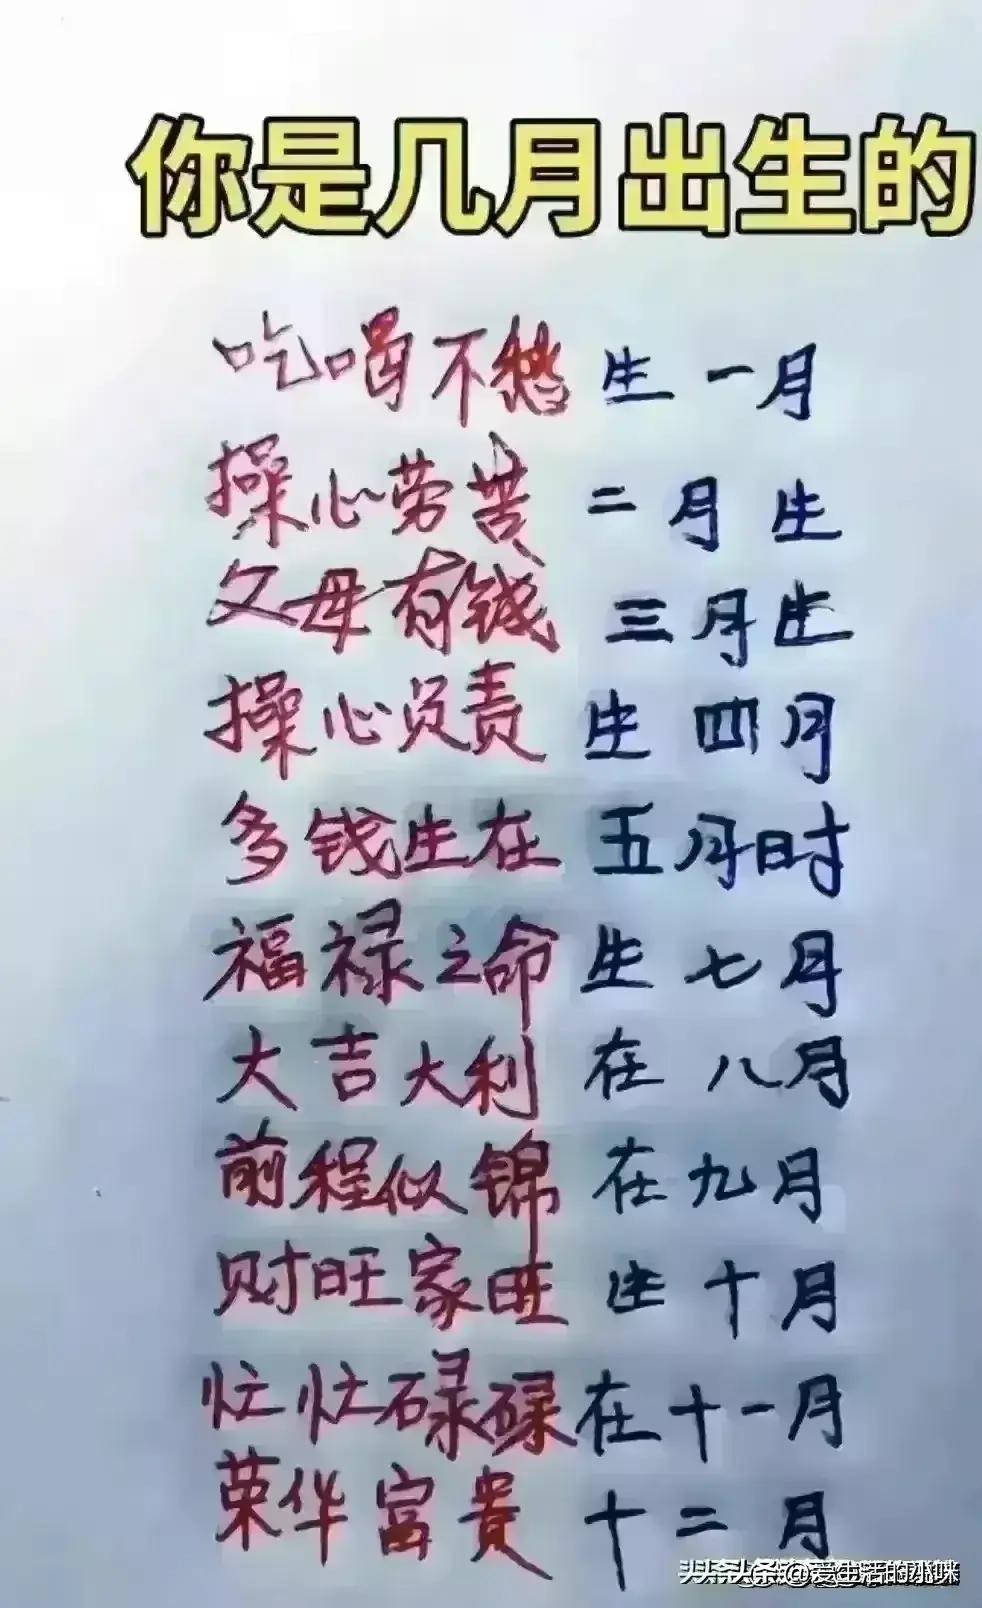 你是几月出生的
吃喝不愁 生一月
操心劳苦 二月生
父母有钱 三月生
操心负责 生四月
多钱生在 五月时
福禄之命 生七月
大吉大利 在八月
前程似锦 在九月
财旺家旺 生十月
忙忙碌碌 在十一月
荣华富贵 十二月
头条 @爱生活的小咪